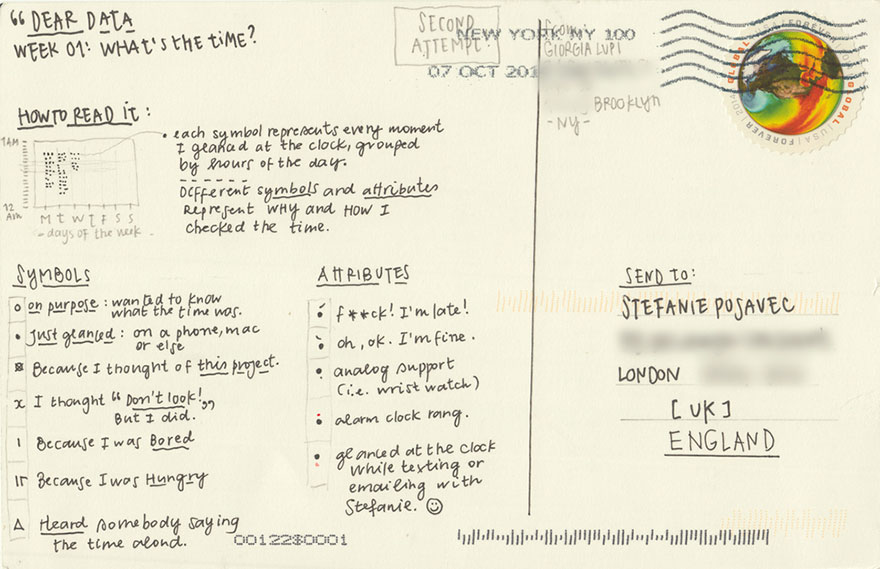 “ DEAR DATA
WEEK 01: WHAT'S THE TIME?
SECOND
ATTEMPT!
NEW YORK NY 100
07 OCT 201
From:
GIORGIA LUPI
BROOKLYN
-NY-
GLOBAL | USA | FOREVER | 2014
GLOBAL | USA | FOREVER
HOW TO READ IT:
1AM
12
AM
M T W T F S S
- days of the week -
• each symbol represents every moment
I glanced at the clock, grouped
by hours of the day.
Different symbols and attributes
Represent WHY and HOW I
checked the time.
SYMBOLS
on purpose: wanted to know
what the time was.
Just glanced: on a phone, mac
or else
Because I thought of this project.
I thought “Don't look!„
But I did.
Because I was Bored
Because I was Hungry
Heard somebody saying
the time aloud.
ATTRIBUTES
f**ck! I'm late!
oh, ok. I'm fine.
analog support
(i.e. wrist watch)
alarm clock rang.
glanced at the clock
while texting or
emailing with
Stefanie. ☺
SEND TO:
STEFANIE POSAVEC
LONDON
[UK]
ENGLAND
00122$0001